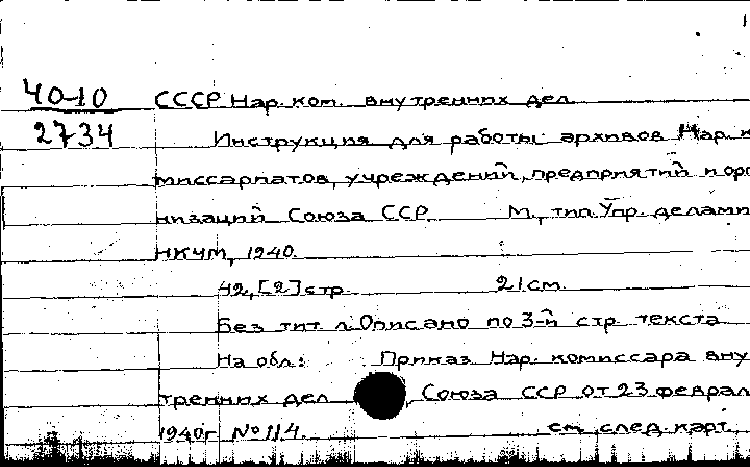 40-10 СССР Нар. ком. внутренних дел
2734 Инструкция для работы архивов Нар. к
миссариатов, учреждений, предприятий и орг
низаций Союза ССР. М., тип. Упр. делами
НКЧМ, 1940.
42, [2] стр. 21 см.
Без тит. л. Описано по 3-й стр. текста
На обл.: Приказ Нар. комиссара вну
тренних дел Союза ССР от 23 феврал
1940г № 114. см. след. карт.